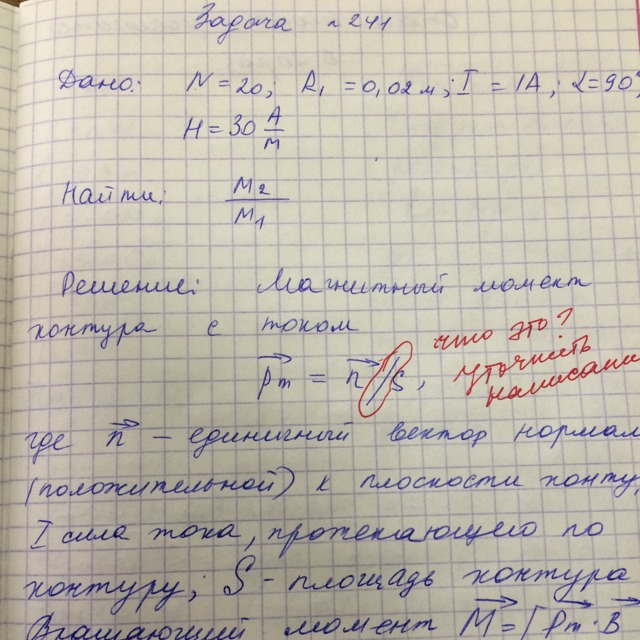 Задача №241
Дано: N = 20; R₁ = 0,02 м; I = 1А; α = 90°
H = 30 А/м
Найти: M₂/M₁
Решение: Магнитный момент
контура с током
pm = n I S, что это?
уточнить
написани
где n – единичный вектор нормал
(положительной) к плоскости конту
I сила тока, протекающего по
контуру; S – площадь контура
Вращающий момент M = [pm · B